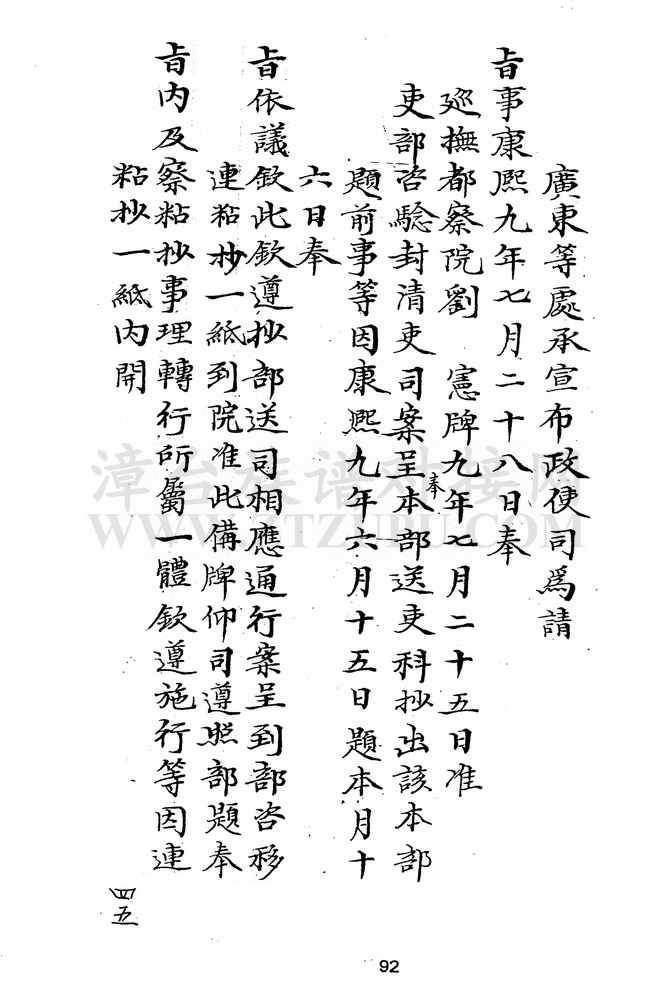 廣東等處承宣布政使司為請
旨事康熙九年七月二十八日奉
巡撫都察院劉　憲牌九年七月二十五日准
吏部咨驗封清吏司案呈奉本部送吏科抄出該本部
題前事等因康熙九年六月十五日題本月十
六日奉
旨依議欽此欽遵抄部送司相應通行案呈到部咨移
連粘抄一紙到院准此備牌仰司遵照部題奉
旨內及察粘抄事理轉行所屬一體欽遵施行等因連
粘抄一紙內開
四五
漳台族谱对接网
WWW.ZTZUPU.COM
92